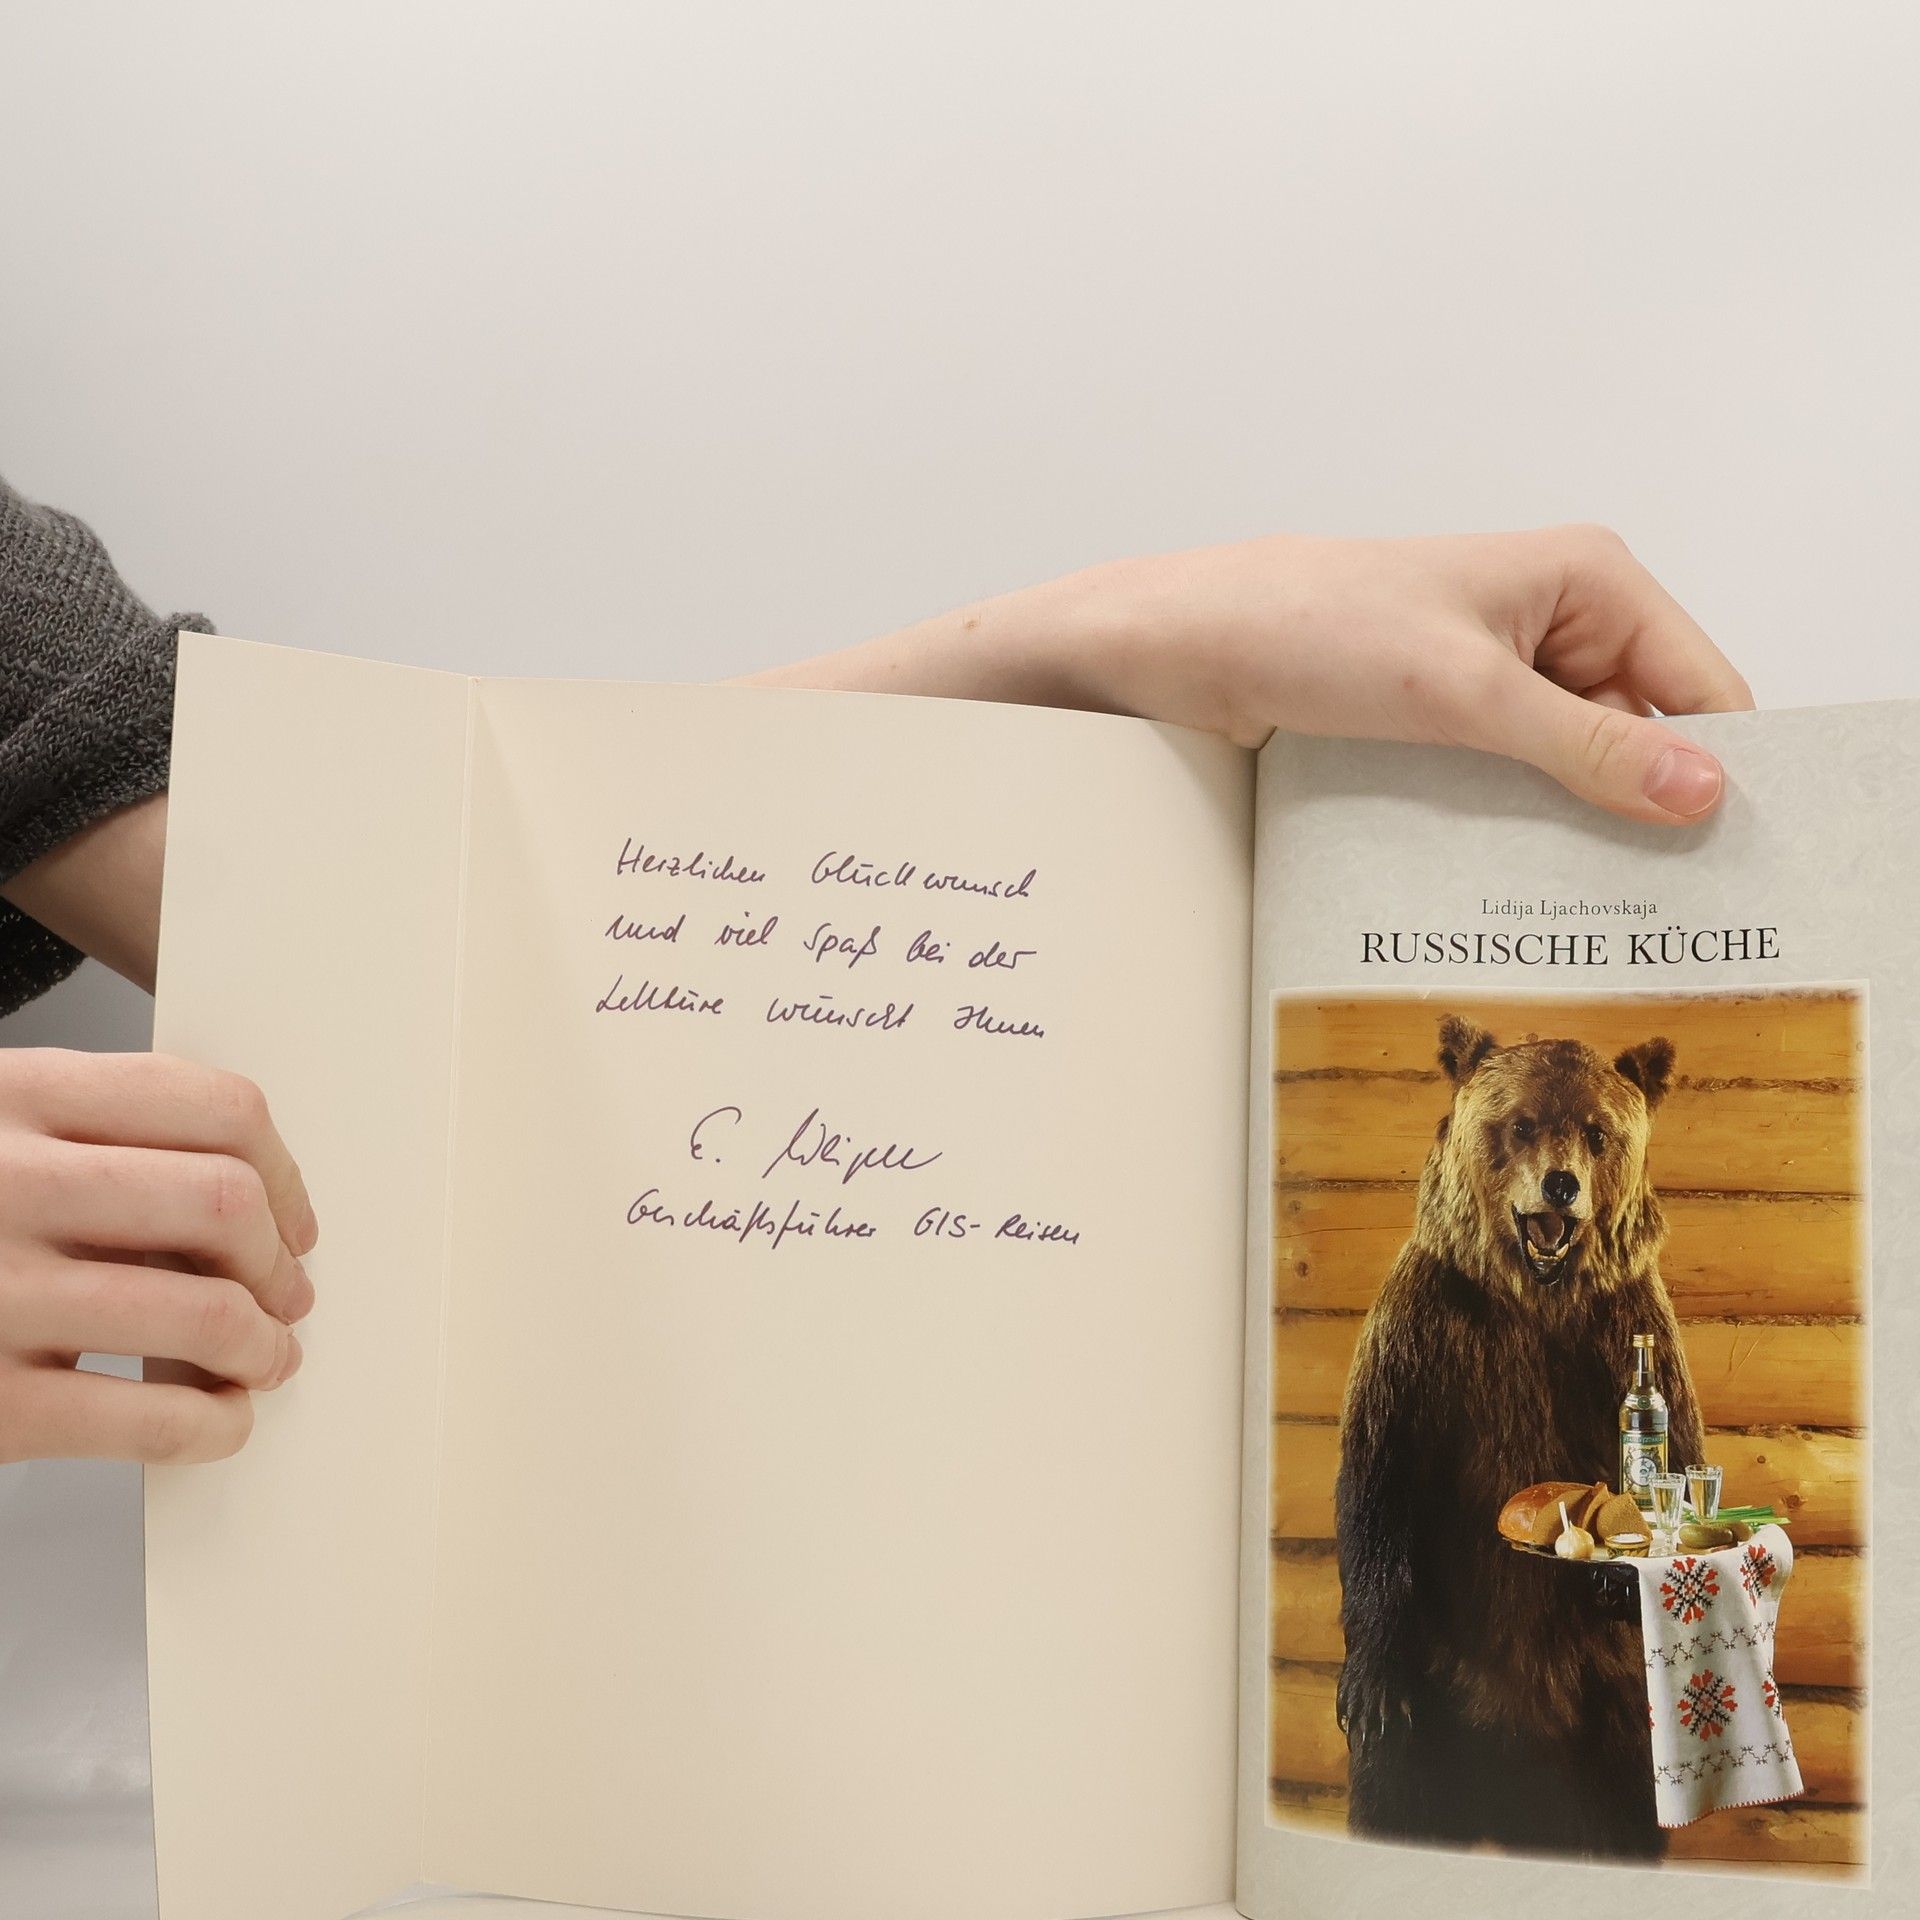 Herzlichen Glückwunsch
und viel Spaß bei der
Lektüre wünscht Ihnen
E.
Geschäftsführer GIS-Reisen
Lidija Ljachovskaja
RUSSISCHE KÜCHE